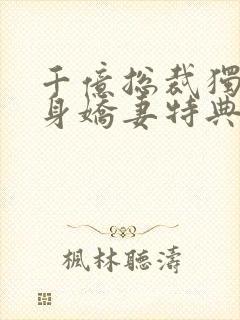 千億總裁獨
身嬌妻特典
楓林聽濤